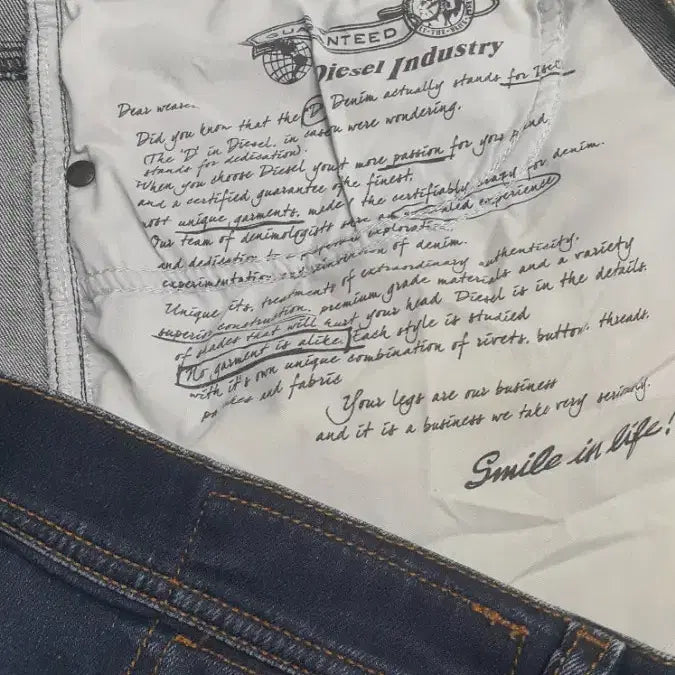 GUARANTEED
Diesel Industry
Dear wearer
Did you know that the 'D' Denim actually stands for
(The 'D' in Diesel, in case you were wondering,
stands for dedication).
When you choose Diesel you get more passion for your
and a certified guarantee of the finest,
most unique garments, made by the certifiably crazy for denim.
Our team of denimologists experience
and dedication to exploration
experimentation and reinvention of denim.
Unique fits, treatments of extraordinary authenticity,
superior construction, premium grade materials and a variety
of shades that will hurt your head Diesel is in the details.
No garment is alike. Each style is studied
with it's own unique combination of rivets, button, threads,
and fabric
Your legs are our business
and it is a business we take very seriously.
Smile in life!